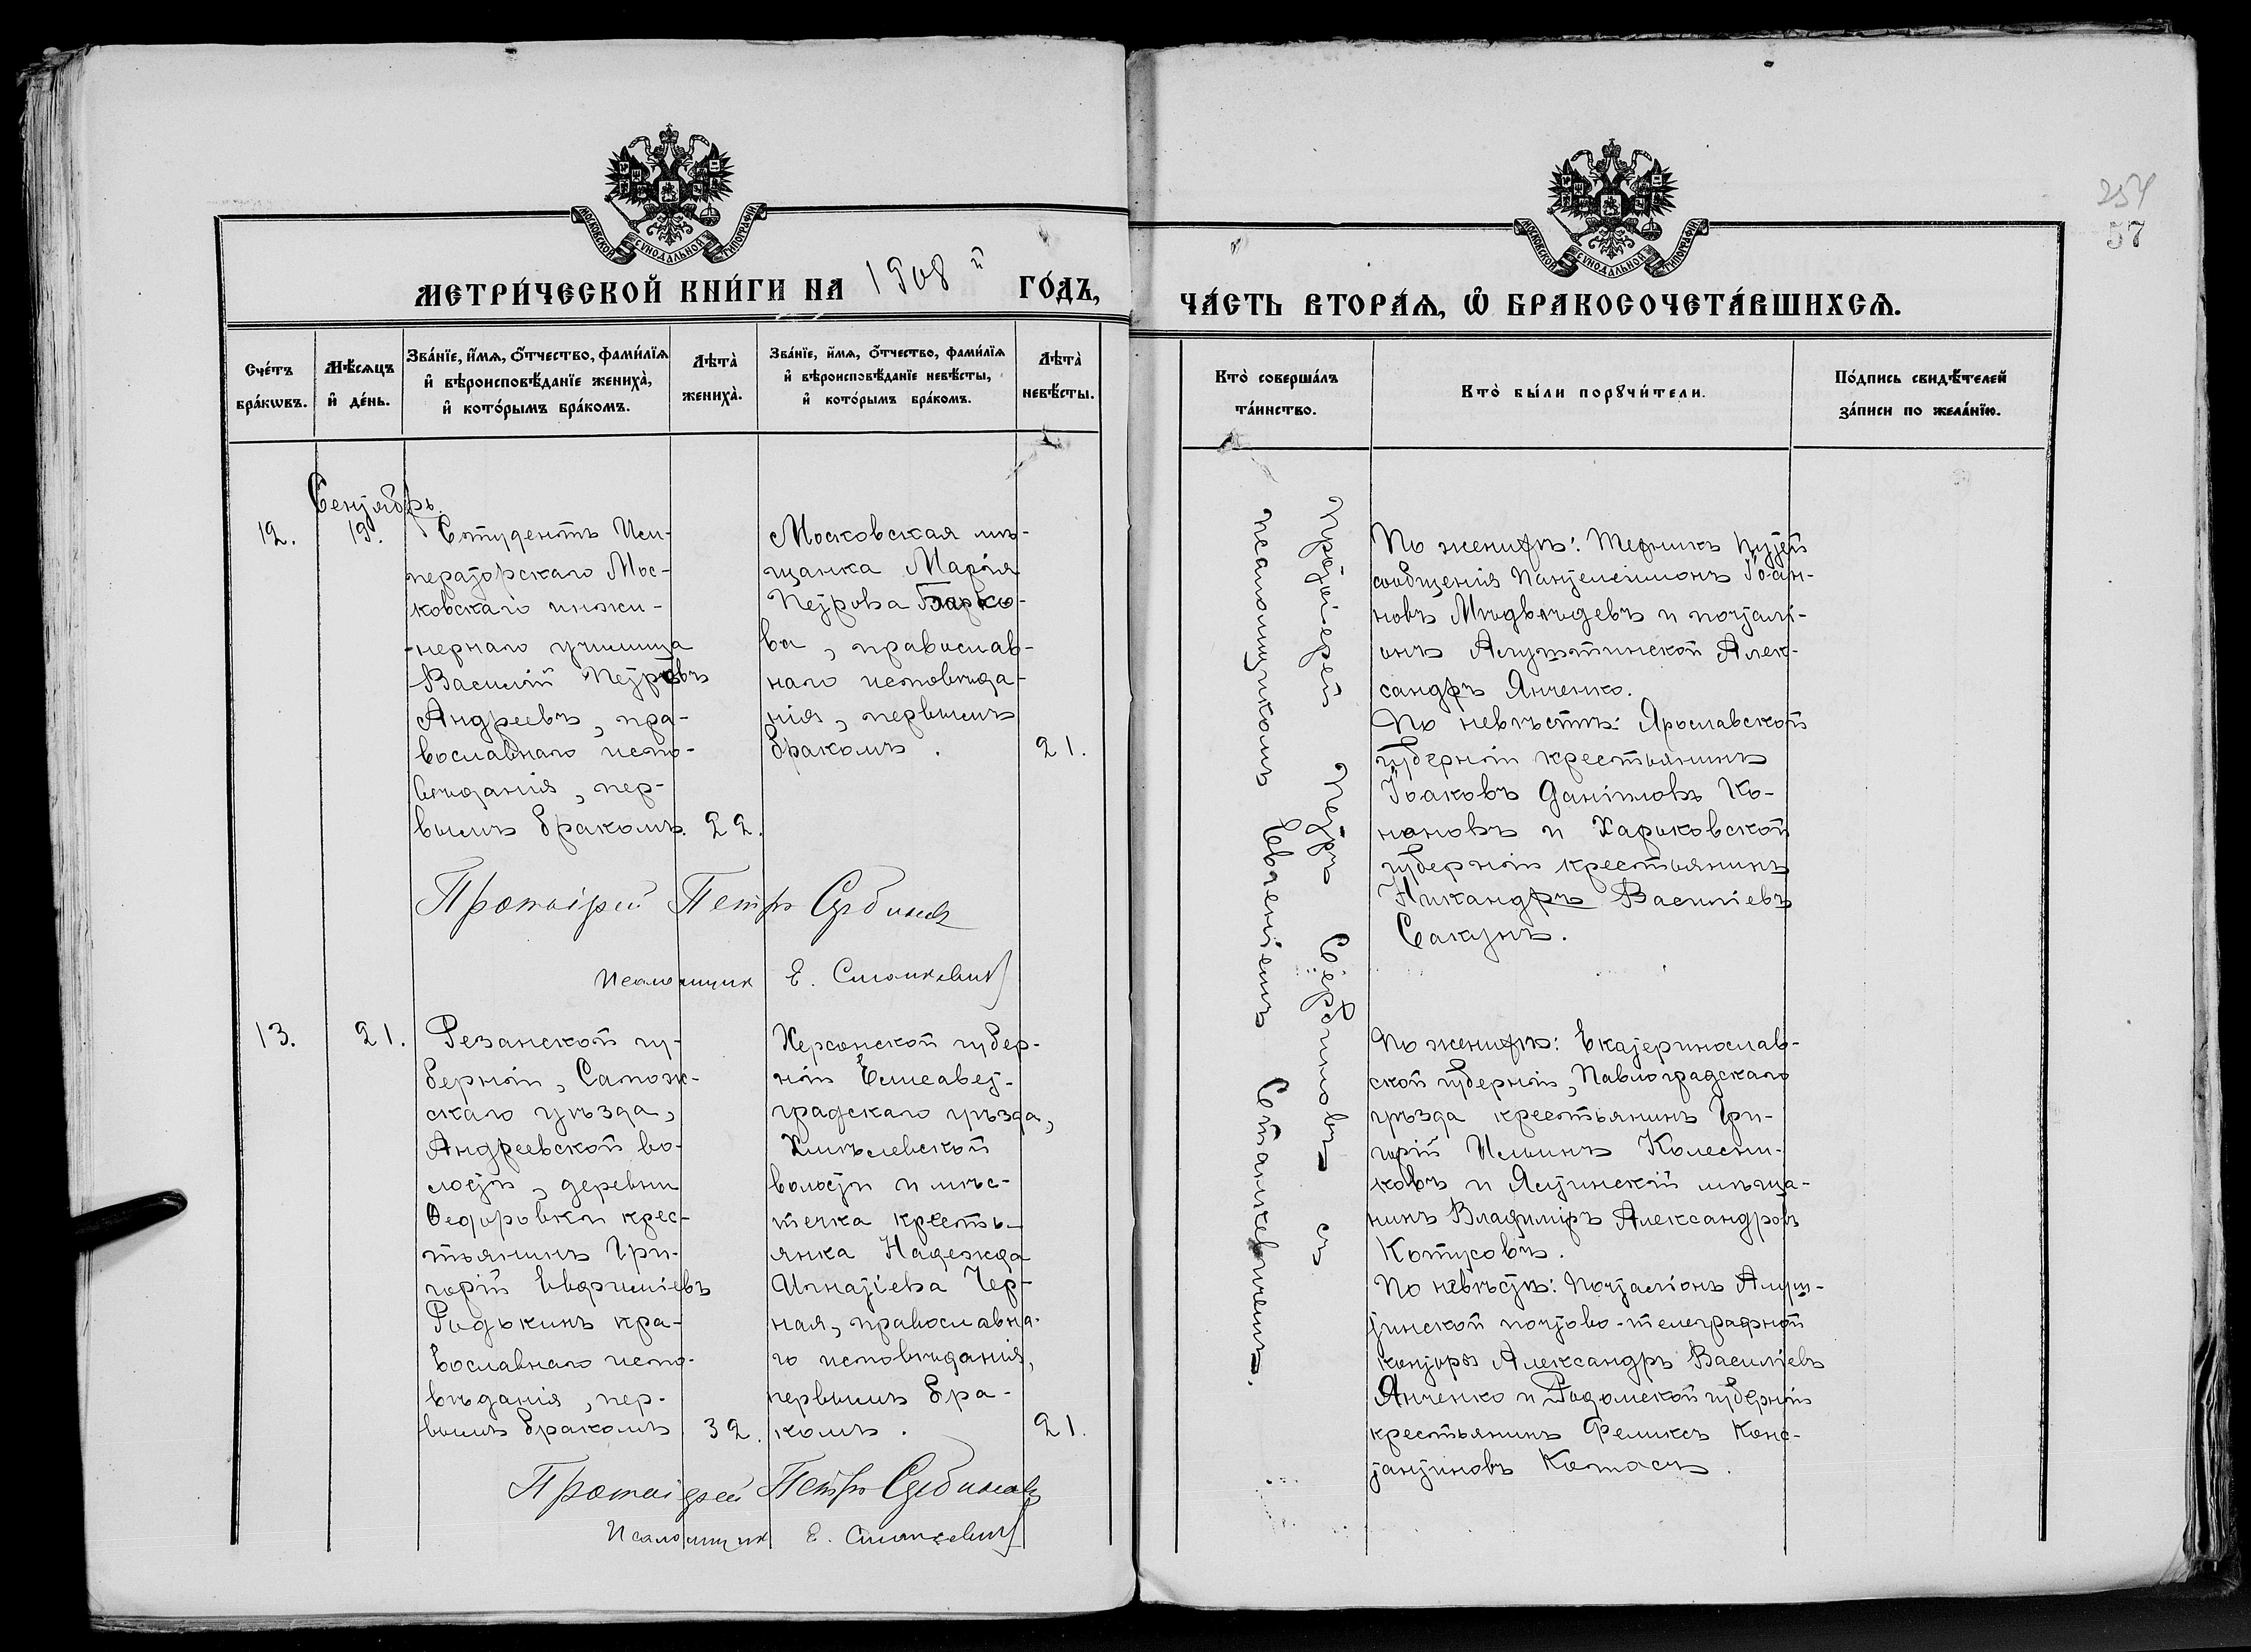 МОСКОВСКОЙ СѴНОДАЛЬНОЙ ТИПОГРАФІИ
МЕТРИ́ЧЕСКОЙ КНИ́ГИ НА 1908й ГО́ДЪ,
Сче́тъ бра́кѡвъ.
Мѣ́сяцъ и҆ де́нь.
Зва́нїе, и҆́мѧ, ѻ҆́тчество, фами́лїѧ
и҆ вѣроисповѣ́данїе жениха̀,
и҆ кото́рымъ бра́комъ.
Лѣта̀ жениха̀.
Зва́нїе, и҆́мѧ, ѻ҆́тчество, фами́лїѧ
и҆ вѣроисповѣ́данїе невѣ́сты,
и҆ кото́рымъ бра́комъ.
Лѣта̀ невѣ́сты.
Сентябрь.
12.
19.
Студентъ Им-
ператорскаго Мос-
ковскаго инжи-
нернаго училища
Василій Петровъ
Андреевъ, пра-
вославнаго испо-
вѣданія, пер-
вымъ бракомъ. 22.
Московская мѣ-
щанка Марія
Петрова Барко-
ва, православ-
наго исповѣда-
нія, первымъ
бракомъ. 21.
Протоіерей Петръ Сербиновъ
Псаломщик Е. Станкевич
13.
21.
Резанской гу-
берніи, Сапож-
скаго уѣзда,
Андреевской во-
лости, деревни
Ѳедоровки крес-
тьянинъ Гри-
горій Евфиміевъ
Родькинъ пра-
вославнаго испо-
вѣданія, пер-
вымъ бракомъ 32.
Херсонской губер-
ніи Елисавет-
градскаго уѣзда,
Хмѣлевской
волости и мѣс-
течка кресть-
янка Надежда
Игнатіева Чер-
ная, православна-
го исповѣданія,
первымъ бра-
комъ. 21.
Протоіерей Петръ Сербиновъ
Псаломщик Е. Станкевич
МОСКОВСКОЙ СѴНОДАЛЬНОЙ ТИПОГРАФІИ
254
57
ЧА́СТЬ ВТОРА́Ѧ, Ѡ҆ БРАКОСОЧЕТА́ВШИХСѦ.
Кто̀ соверша́лъ
та́инство.
Кто̀ бы́ли порꙋчи́тели.
По́дпись свидѣ́телей
за́писи по жела́нїю.
Протоіерей Петръ Сербиновъ съ
псаломщикомъ Евгеніемъ Станкевичемъ.
По женихѣ: Техникъ путей
сообщенія Пантелеимонъ Іоан-
новъ Мѣдвѣдевъ и почталі-
онъ Алуштинской Алек-
сандръ Янченко.
По невѣстѣ: Ярославской
губерніи крестьянинъ
Іоаковъ Даніиловъ Ко-
нановъ и Харьковской
губерніи крестьянинъ
Никандръ Василіевъ
Сакунъ.
По женихѣ: Екатеринослав-
ской губерніи, Павлоградскаго
уѣзда крестьянинъ Гри-
горій Ильинъ Колесни-
ковъ и Ялтинскій мѣща-
нинъ Владиміръ Александровъ
Котусовъ.
По невѣстѣ: Почталіонъ Алуш-
тинской почтово-телеграфной
конторы Александръ Василіевъ
Янченко и Радомской губерніи
крестьянинъ Феликсъ Конс-
тантиновъ Комасъ.